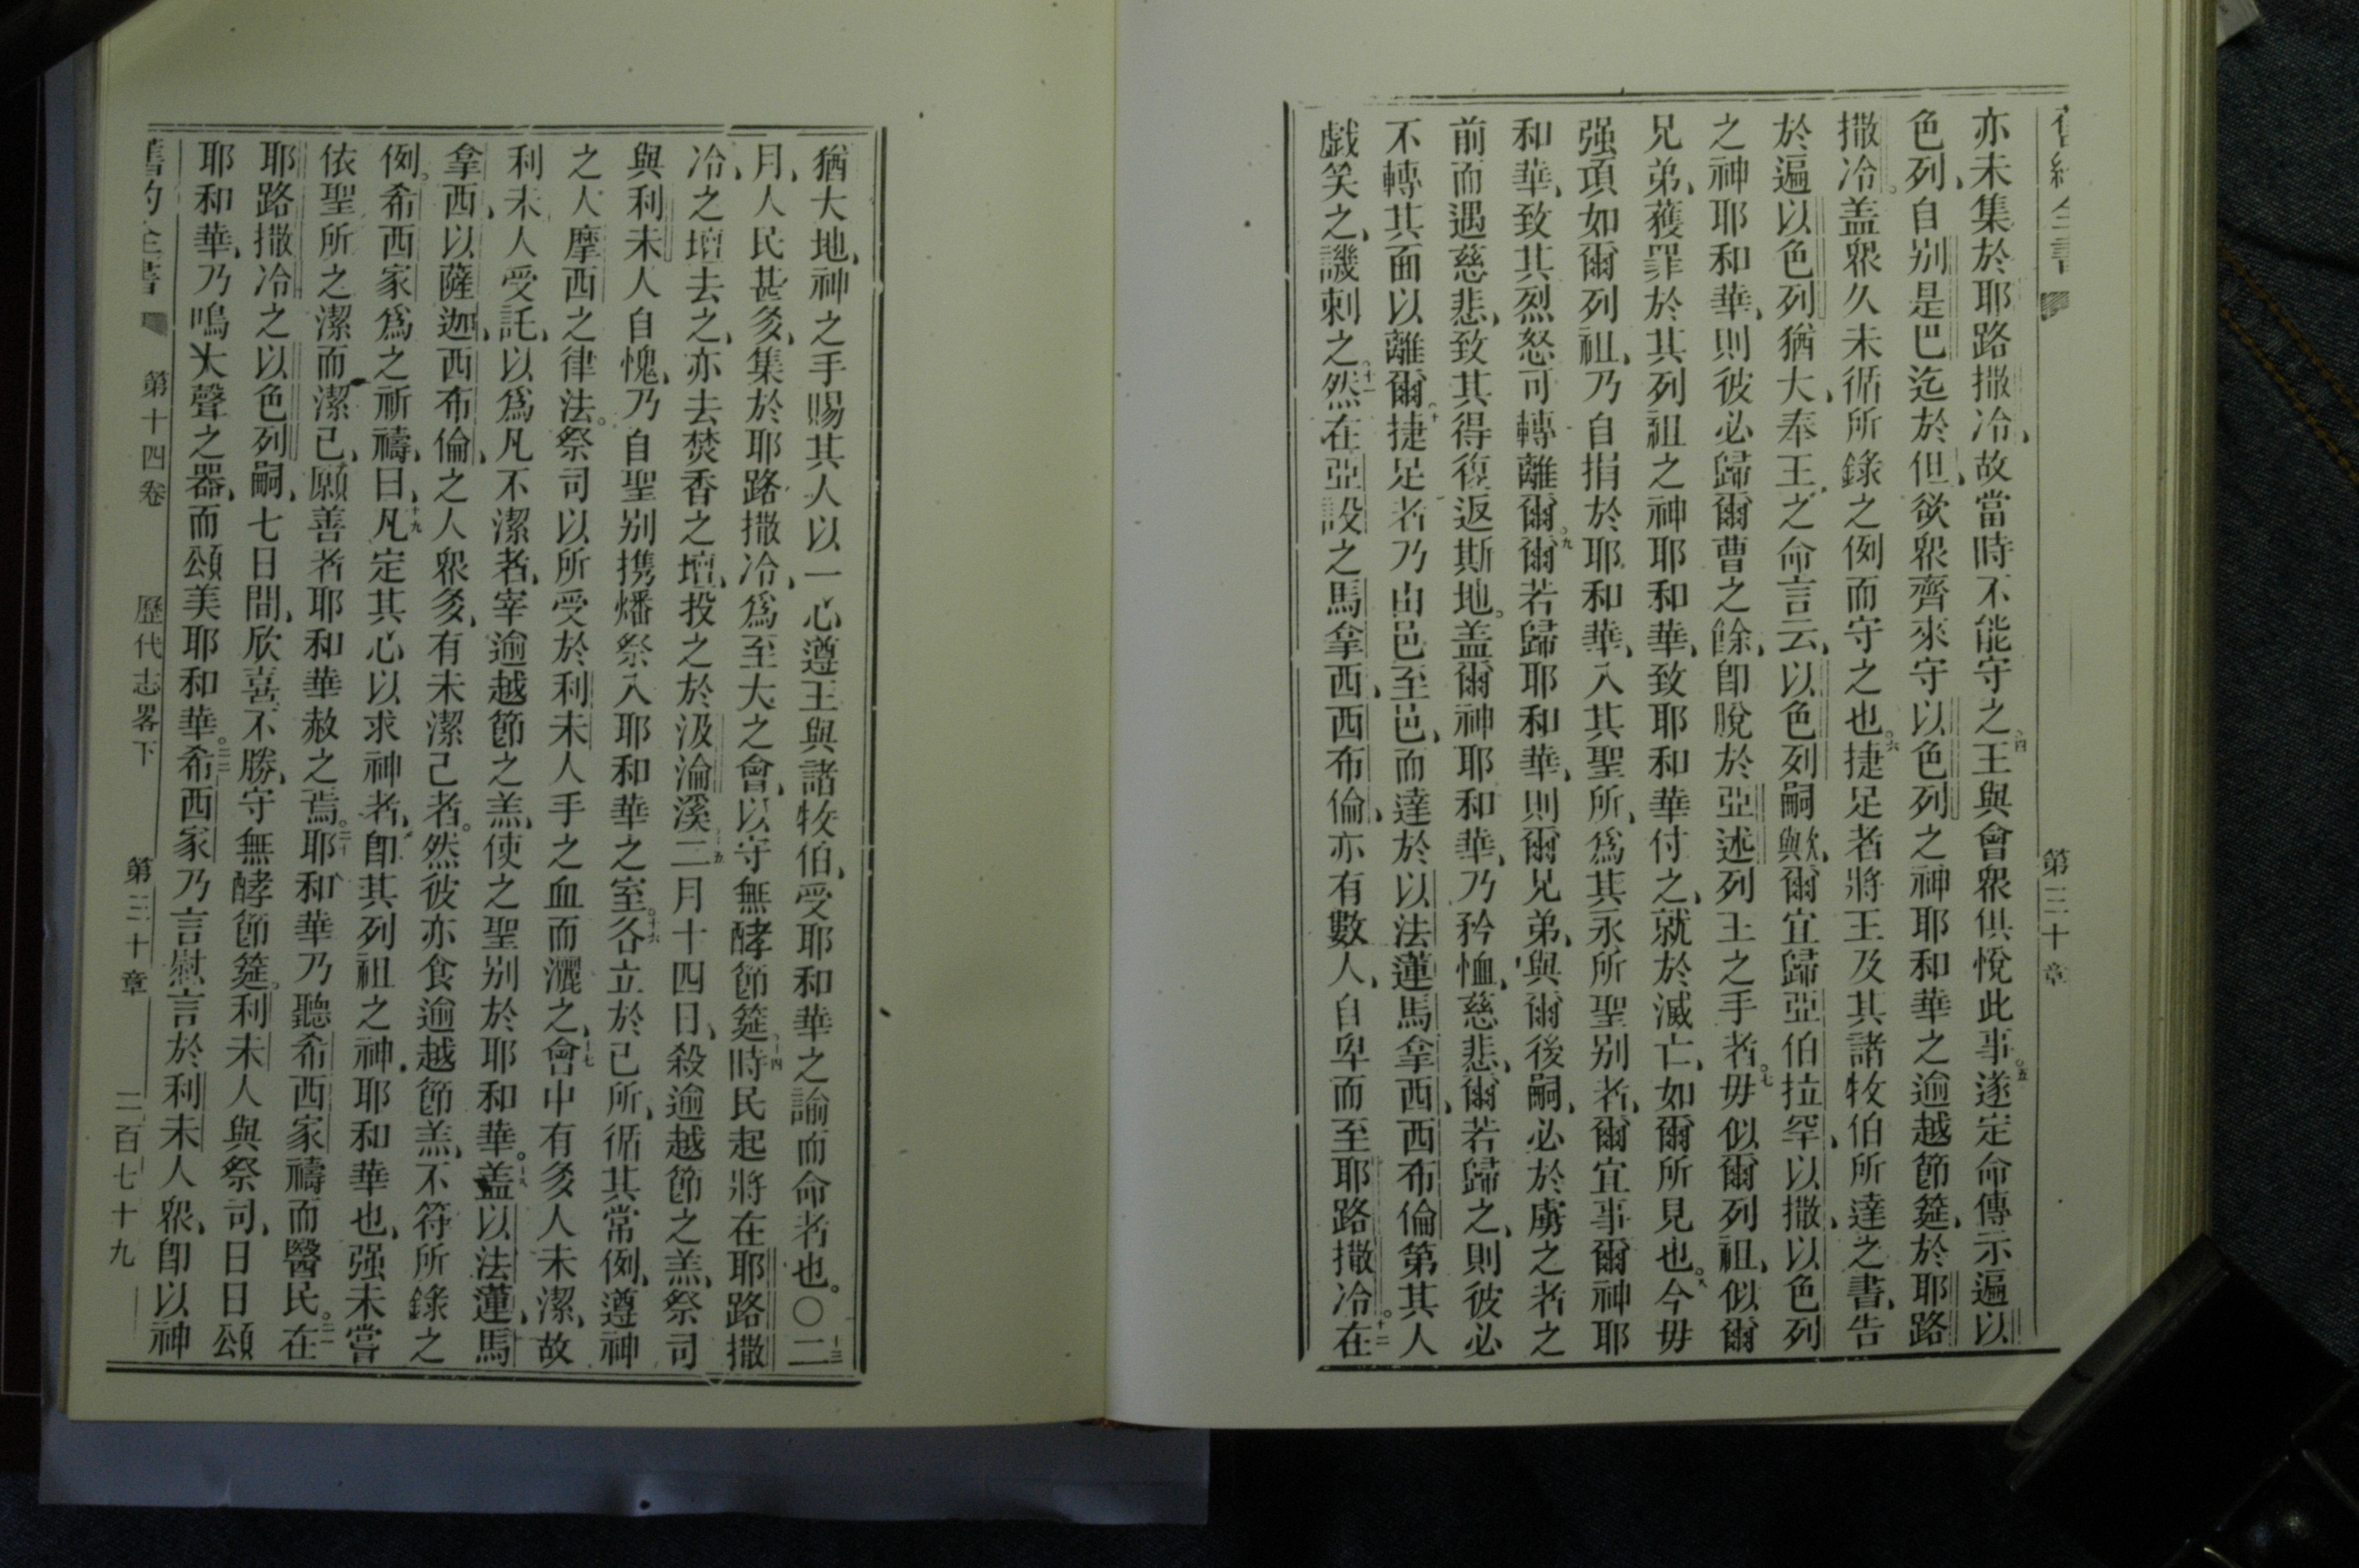 第三十章
亦未集於耶路撒冷、故當時不能守之、四王與會眾俱悅此事。五遂定命傳示遍以
色列、自別是巴迄於但、欲眾齊來守以色列之神耶和華之逾越節筵、於耶路
撒冷。盖眾久未循所錄之例而守之也。六捷足者將王及其諸牧伯所達之書、告
於遍以色列猶大、奉王之命言云、以色列嗣歟、爾宜歸亞伯拉罕、以撒、以色列
之神耶和華、則彼必歸爾曹之餘、卽脫於亞述列王之手者。七毋似爾列祖、似爾
兄弟、獲罪於其列祖之神耶和華、致耶和華付之、就於滅亡、如爾所見也。八今毋
强項如爾列祖、乃自捐於耶和華、入其聖所、為其永所聖別者、爾宜事爾神耶
和華、致其烈怒可轉離爾。九爾若歸耶和華、則爾兄弟、與爾後嗣、必於虜之者之
前而遇慈悲、致其得復返斯地。盖爾神耶和華、乃矜恤、慈悲、爾若歸之、則彼必
不轉其面以離爾。十捷足者乃由邑至邑、而達於以法蓮馬拿西、西布倫第其人
戲笑之、譏刺之。十一然在亞設之馬拿西、西布倫、亦有數人、自卑而至耶路撒冷。十二在
猶大地、神之手賜其人以一心遵王與諸牧伯、受耶和華之諭而命者也。〇十三二
月、人民甚多、集於耶路撒冷、為至大之會、以守無酵節筵、十四時民起將在耶路撒
冷、之壇去之、亦去焚香之壇、投之於汲淪溪、十五二月十四日、殺逾越節之羔、祭司
與利未人自愧、乃自聖別携燔祭入耶和華之室。十六各立於己所、循其常例、遵神
之人摩西之律法。祭司以所受於利未人手之血而灑之、十七會中有多人未潔、故
利未人受託、以為凡不潔者、宰逾越節之羔、使之聖別於耶和華。十八盖以法蓮、馬
拿西、以薩迦、西布倫、之人眾多、有未潔己者。然彼亦食逾越節羔、不符所錄之
例。希西家為之祈禱、曰、十九凡定其心以求神者、卽其列祖之神、耶和華也、强未嘗
依聖所之潔而潔己、願善者耶和華赦之焉。二十耶和華乃聽希西家禱而醫民。二一在
耶路撒冷之以色列嗣、七日間、欣喜不勝、守無酵節筵。利未人與祭司、日日頌
耶和華、乃鳴大聲之器、而頌美耶和華。二二希西家乃言慰言於利未人眾、卽以神
第十四卷 歷代志畧下 第三十章 二百七十九